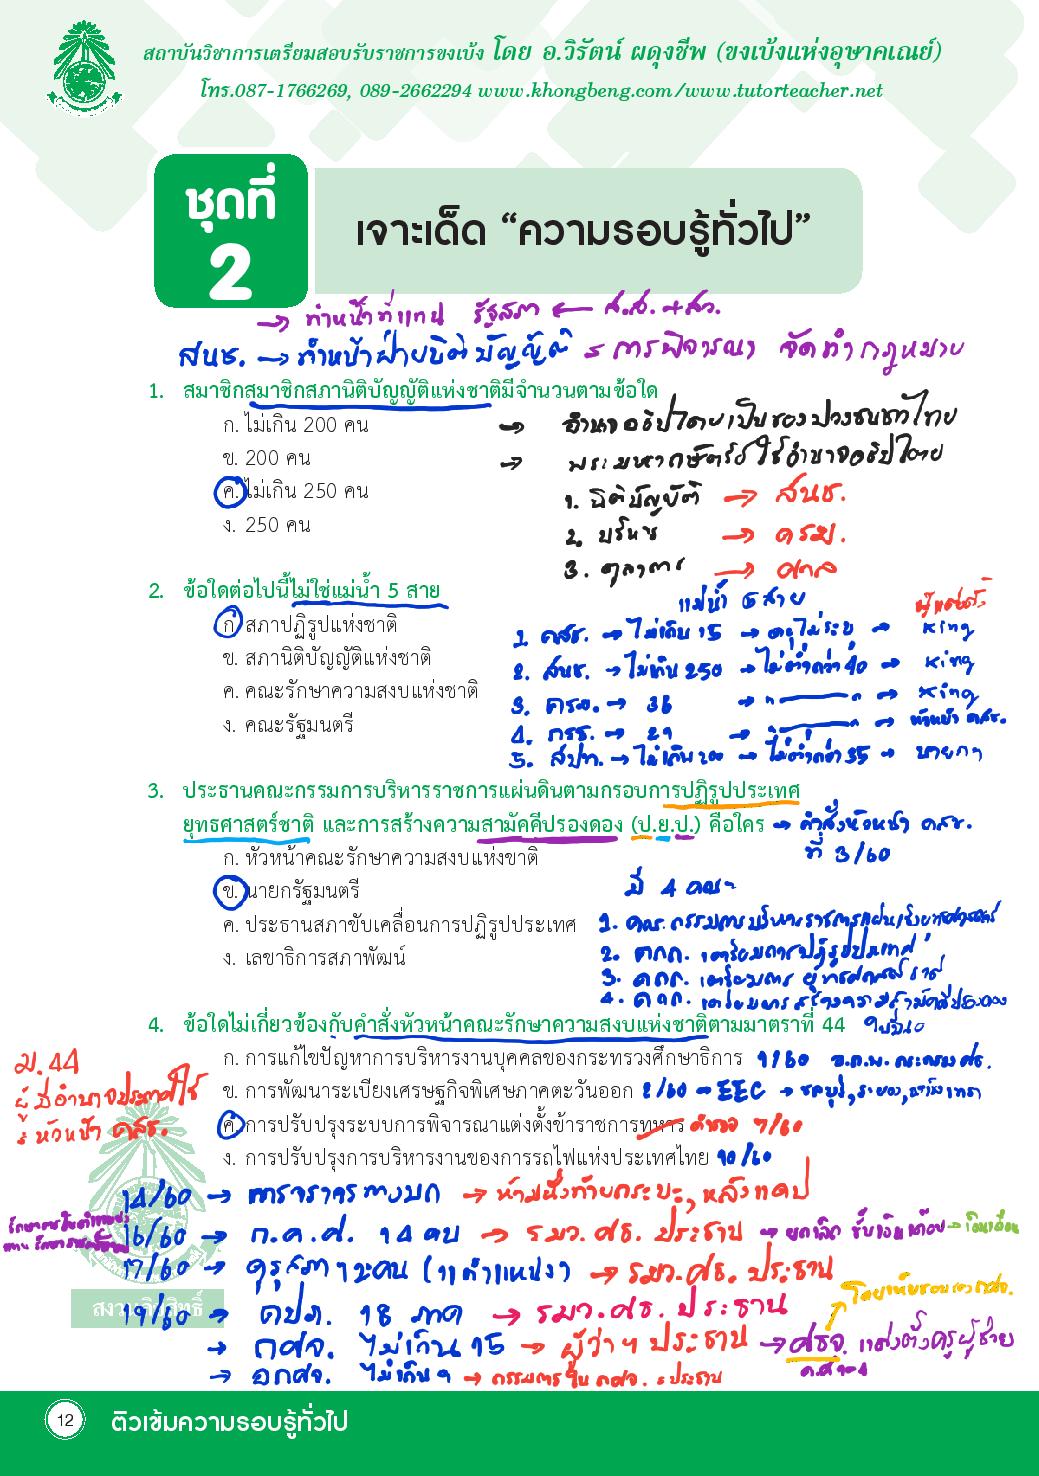 สถาบันวิชาการเตรียมสอบรับราชการขงเบ้ง โดย อ.วิรัตน์ ผดุงชีพ (ขงเบ้งแห่งอุษาคเณย์)
โทร.087-1766269, 089-2662294 www.khongbeng.com/www.tutorteacher.net
ชุดที่ 2
เจาะเด็ด “ความรอบรู้ทั่วไป”
→ ทำหน้าที่แทน รัฐสภา ← ส.ส. + สว.
สนช. → ทำหน้าฝ่ายนิติบัญญัติ = การพิจารณา จัดทำกฎหมาย
1. สมาชิกสมาชิกสภานิติบัญญัติแห่งชาติมีจำนวนตามข้อใด
ก. ไม่เกิน 200 คน → อำนาจอธิปไตยเป็นของปวงชนชาวไทย
ข. 200 คน → พระมหากษัตริย์ใช้อำนาจอธิปไตย
ค. ไม่เกิน 250 คน 1. นิติบัญญัติ → สนช.
ง. 250 คน 2. บริหาร → ครม.
3. ตุลาการ → ศาล
2. ข้อใดต่อไปนี้ไม่ใช่แม่น้ำ 5 สาย แม่น้ำ 5 สาย
ก. สภาปฏิรูปแห่งชาติ 1. คสช. → ไม่เกิน 15 → อายุไม่ระบุ → king
ข. สภานิติบัญญัติแห่งชาติ 2. สนช. → ไม่เกิน 250 → ไม่ต่ำกว่า 40 → king
ค. คณะรักษาความสงบแห่งชาติ 3. ครม. → 36 → king
ง. คณะรัฐมนตรี 4. กรธ. → 21 → หัวหน้า คสช.
5. สปท. → ไม่เกิน 200 → ไม่ต่ำกว่า 35 → นายกฯ
3. ประธานคณะกรรมการบริหารราชการแผ่นดินตามกรอบการปฏิรูปประเทศ
ยุทธศาสตร์ชาติ และการสร้างความสามัคคีปรองดอง (ป.ย.ป.) คือใคร → คำสั่งหัวหน้า คสช.
ที่ 3/60
ก. หัวหน้าคณะรักษาความสงบแห่งชาติ
ข. นายกรัฐมนตรี มี 4 คณะ
ค. ประธานสภาขับเคลื่อนการปฏิรูปประเทศ
ง. เลขาธิการสภาพัฒน์
2. คกก. เตรียมการปฏิรูปประเทศ
3. คกก. เตรียมการ ยุทธศาสตร์ชาติ
4. คกก. เตรียมการสร้างความสามัคคีปรองดอง
4. ข้อใดไม่เกี่ยวข้องกับคำสั่งหัวหน้าคณะรักษาความสงบแห่งชาติตามมาตราที่ 44
ม.44
ผู้มีอำนาจประกาศใช้
= หัวหน้า คสช.
ก. การแก้ไขปัญหาการบริหารงานบุคคลของกระทรวงศึกษาธิการ 1/60
ข. การพัฒนาระเบียงเศรษฐกิจพิเศษภาคตะวันออก 2/60 = EEC → ชลบุรี, ระยอง, ฉะเชิงเทรา
ค. การปรับปรุงระบบการพิจารณาแต่งตั้งข้าราชการทหาร ตำรวจ 7/60
ง. การปรับปรุงการบริหารงานของการรถไฟแห่งประเทศไทย 10/60
14/60 → การจราจรทางบก → ห้ามนั่งท้ายกระบะ, หลังแคป
16/60 → ก.ค.ศ. 14 คน → รมว.ศธ. ประธาน
17/60 → คุรุสภา → รมว.ศธ. ประธาน
19/60 → คปภ. 18 ภาค → รมว.ศธ. ประธาน
→ กศจ. ไม่เกิน 15 → ผู้ว่าฯ ประธาน → ศธจ. แต่งตั้งครูผู้ช่วย
→ อกศจ. ไม่เกิน 9 → กรรมการใน กศจ. = ประธาน
12 ติวเข้มความรอบรู้ทั่วไป